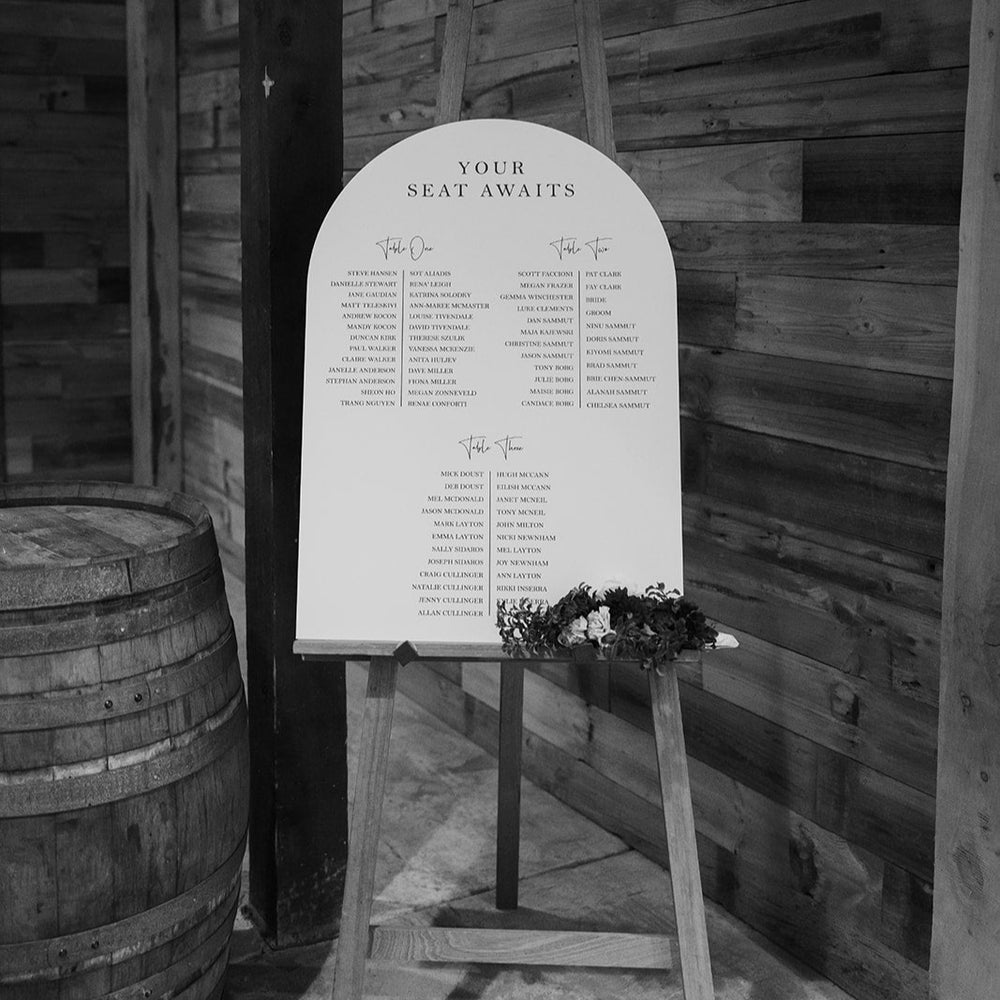 YOUR
SEAT AWAITS
Table One
STEVE HANSEN
DANIELLE STEWART
JANE GAUDIAN
MATT TELESKIVI
ANDREW KOCON
MANDY KOCON
DUNCAN KIRK
PAUL WALKER
CLAIRE WALKER
JANELLE ANDERSON
STEPHAN ANDERSON
SHEON HO
TRANG NGUYEN
SOT ALIADIS
RENA' LEIGH
KATRINA SOLODKY
ANN-MAREE MCMASTER
LOUISE TIVENDALE
DAVID TIVENDALE
THERESE SZULIK
VANESSA MCKENZIE
ANITA HULJEV
DAVE MILLER
FIONA MILLER
MEGAN ZONNEVELD
RENAE CONFORTI
Table Two
SCOTT FACCIONI
MEGAN FRAZER
GEMMA WINCHESTER
LUKE CLEMENTS
DAN SAMMUT
MAJA KAJEWSKI
CHRISTINE SAMMUT
JASON SAMMUT
TONY BORG
JULIE BORG
MAISIE BORG
CANDACE BORG
PAT CLARK
FAY CLARK
BRIDE
GROOM
NINU SAMMUT
DORIS SAMMUT
KIYOMI SAMMUT
BRAD SAMMUT
BRIE CHEN-SAMMUT
ALANAH SAMMUT
CHELSEA SAMMUT
Table Three
MICK DOUST
DEB DOUST
MEL MCDONALD
JASON MCDONALD
MARK LAYTON
EMMA LAYTON
SALLY SIDAROS
JOSEPH SIDAROS
CRAIG CULLINGER
NATALIE CULLINGER
JENNY CULLINGER
ALLAN CULLINGER
HUGH MCCANN
EILISH MCCANN
JANET MCNEIL
TONY MCNEIL
JOHN MILTON
NICKI NEWNHAM
MEL LAYTON
JOY NEWNHAM
ANN LAYTON
RIKKI INSERRA